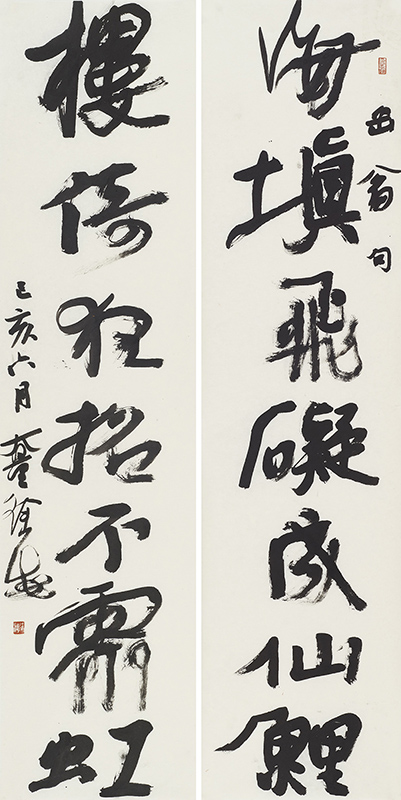 海填飛礙成仙鯉
缶翁句
樓倚狂招不霽虹
己亥六月 徐